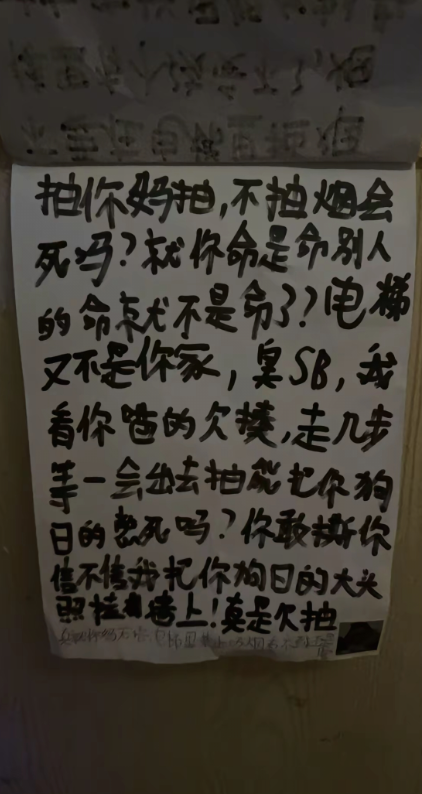 抽你妈抽,不抽烟会
死吗?就你命是命别人
的命就不是命了?电梯
又不是你家,臭SB,我
看你的欠揍,走几步
等一会出去抽能把你狗
日的憋死吗?你敢撕你
信不信我把你狗日的大头
照挂在墙上!真是欠抽